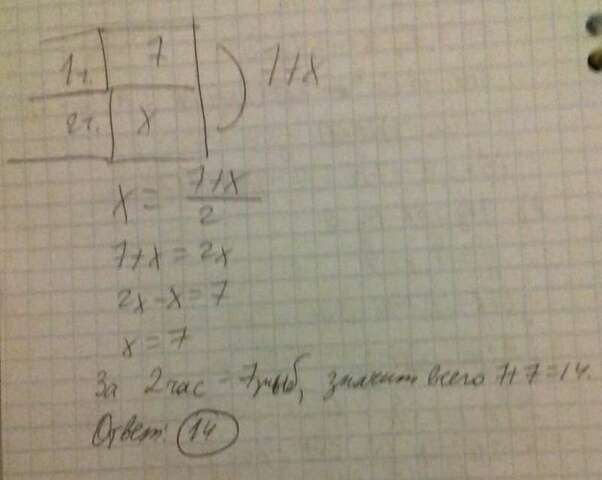 1ч. 7
2ч. x 7+x
x = 7+x / 2
7+x = 2x
2x-x=7
x = 7
За 2 час - 7 рыб, значит всего 7+7=14.
Ответ: 14